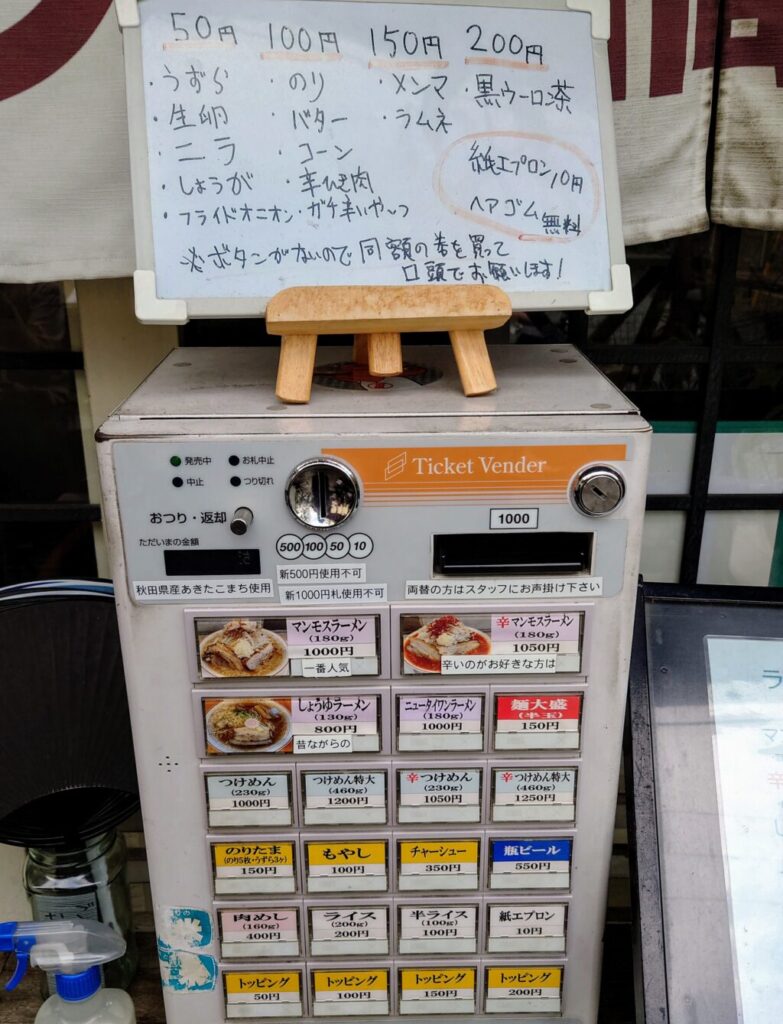 50円 100円 150円 200円
・うずら ・のり ・メンマ ・黒ウーロン茶
・生卵 ・バター ・ラムネ
・ニラ ・コーン
・しょうが ・辛ひき肉
・フライドオニオン ・ガチ辛いやっつ
紙エプロン10円
ヘアゴム無料
※ボタンがないので同額の券を買って
口頭でお願いします!
発売中 お札中止
中止 つり切れ
Ticket Vender
おつり・返却
ただいまの金額
500 100 50 10
1000
秋田県産あきたこまち使用
新500円使用不可
新1000円札使用不可
両替の方はスタッフにお声掛け下さい
マンモスラーメン
(180g)
1000円
一番人気
辛マンモスラーメン
(180g)
1050円
辛いのがお好きな方は
しょうゆラーメン
(130g)
800円
昔ながらの
ニュータイワンラーメン
(180g)
1000円
麺大盛
(半玉)
150円
つけめん
(230g)
1000円
つけめん特大
(460g)
1200円
辛つけめん
(230g)
1050円
辛つけめん特大
(460g)
1250円
のりたま
(のり5枚・うずら3ヶ)
150円
もやし
100円
チャーシュー
350円
瓶ビール
550円
肉めし
(160g)
400円
ライス
(200g)
200円
半ライス
(100g)
100円
紙エプロン
10円
トッピング
50円
トッピング
100円
トッピング
150円
トッピング
200円